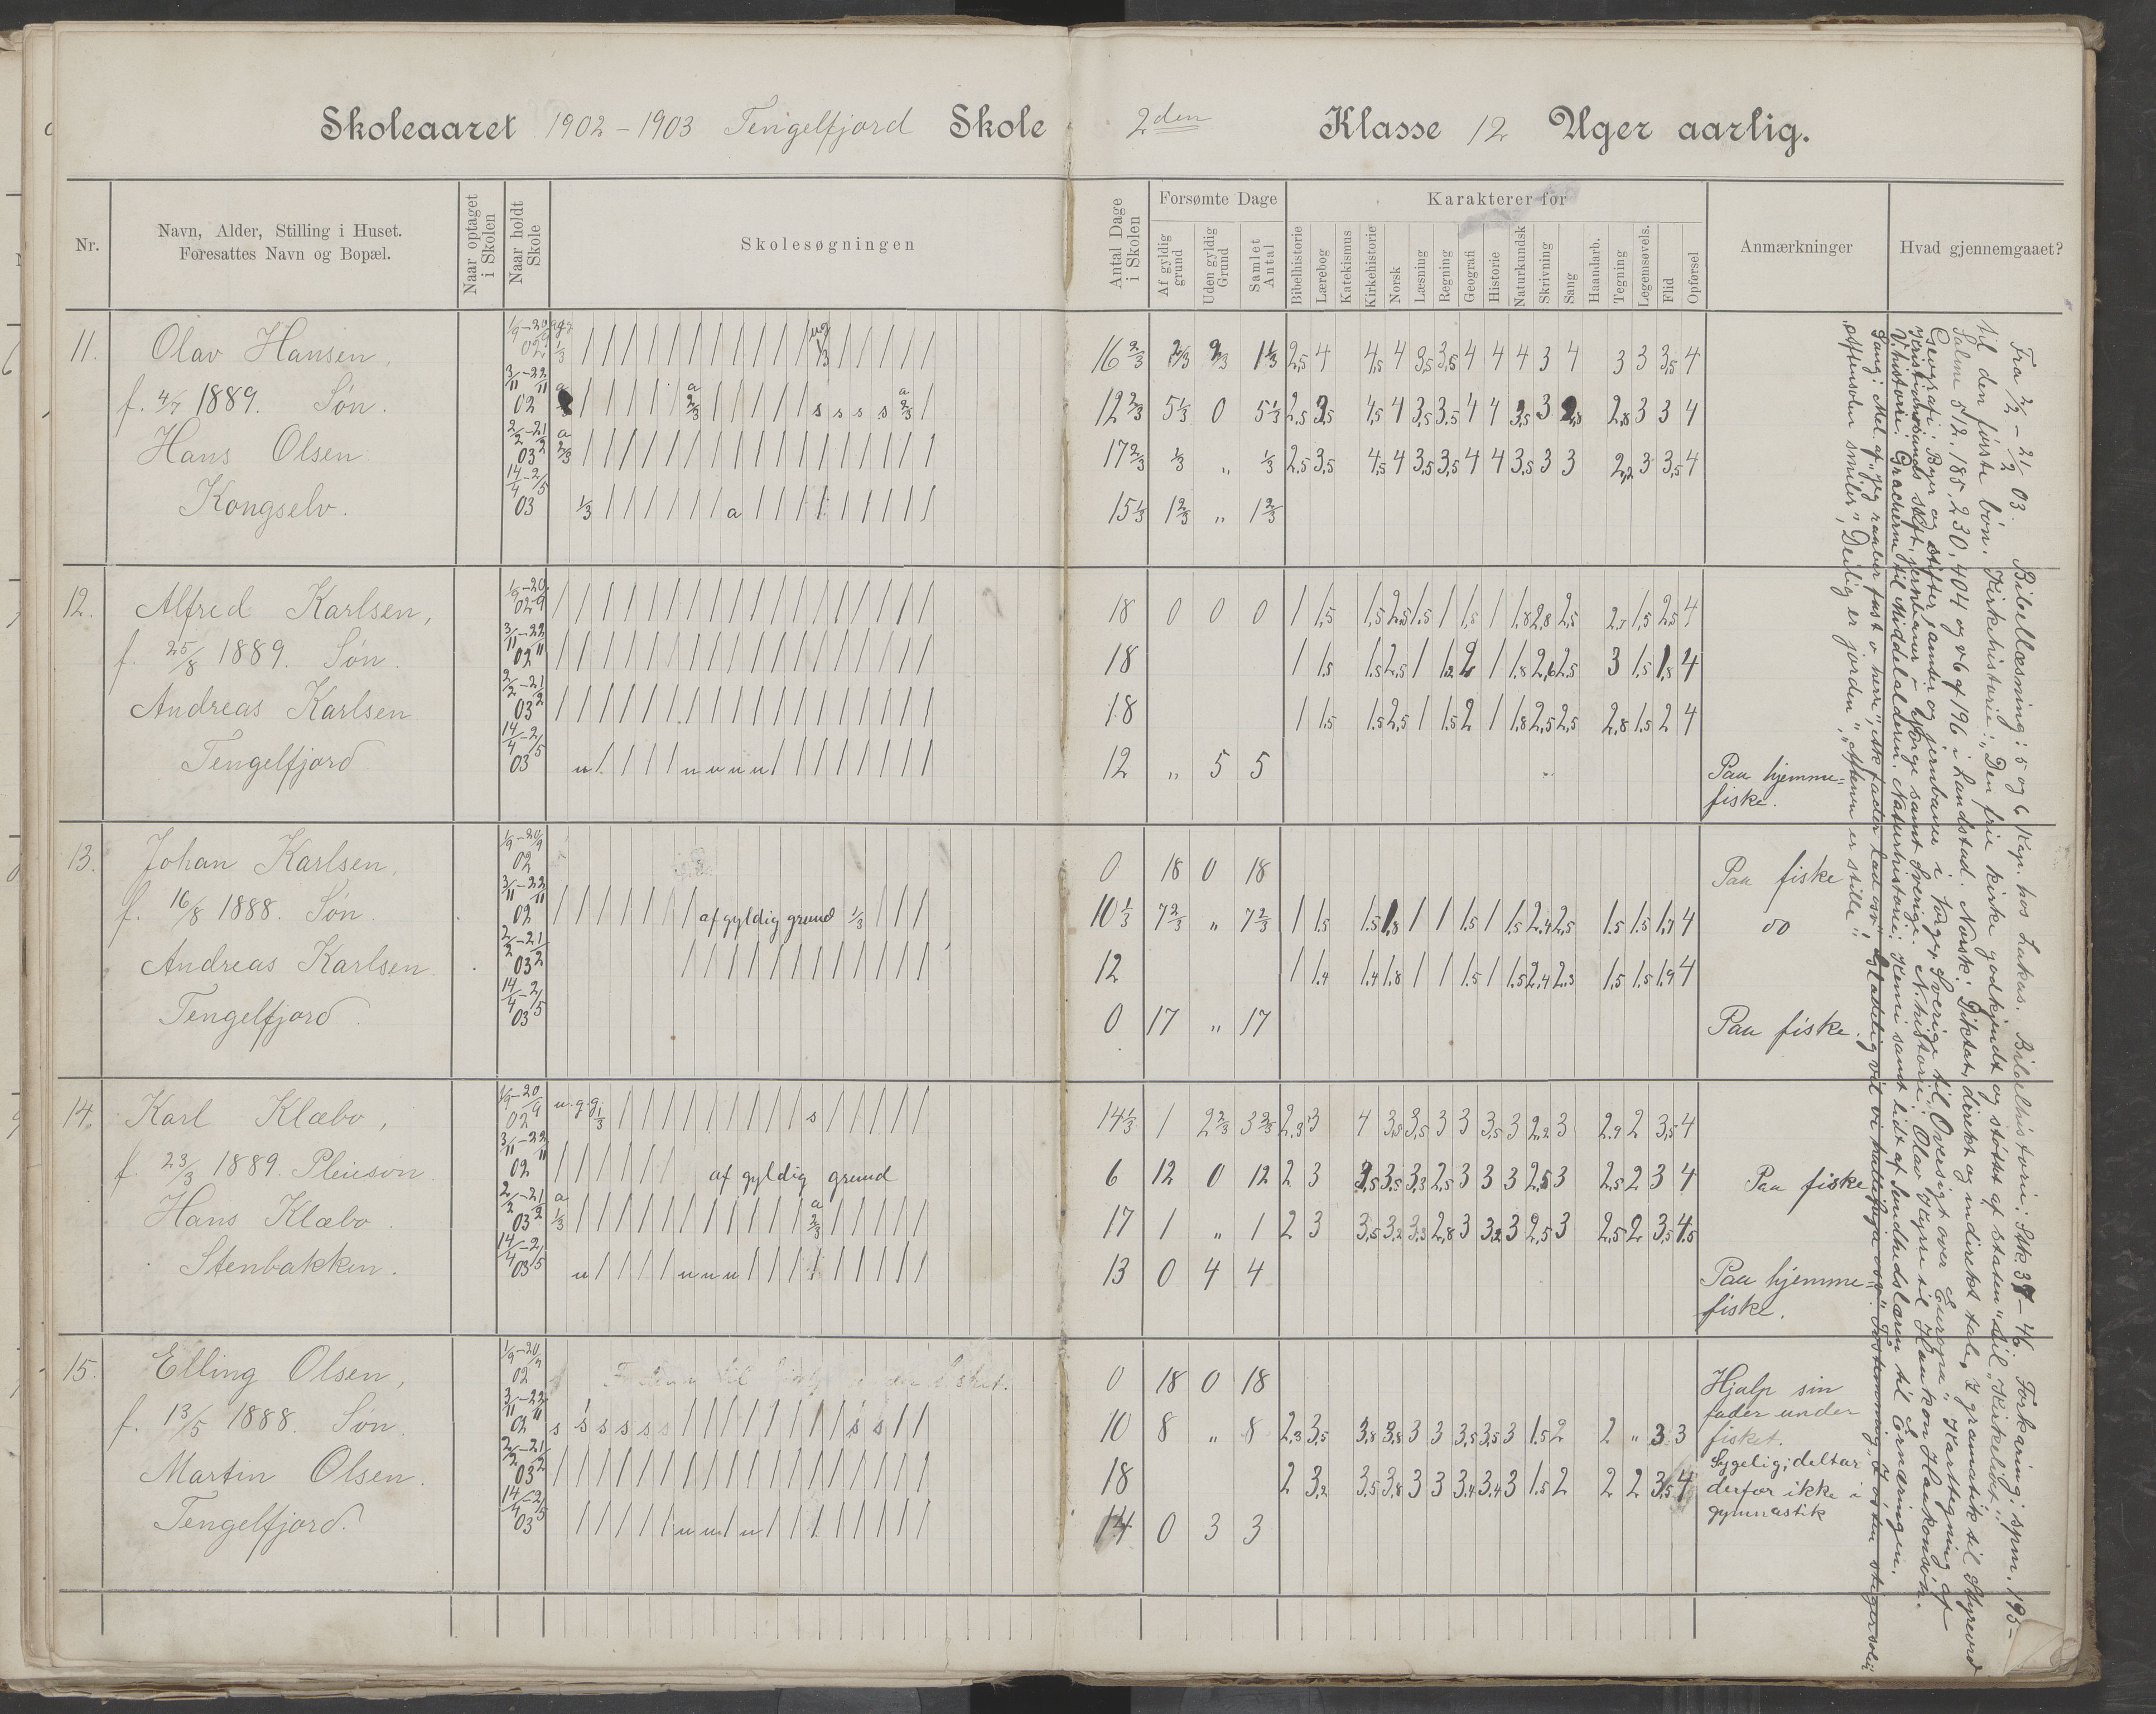 Skoleaaret 1902-1903 Tengelfjord Skole 2den Klasse 12 Uger aarlig.
Nr.
Navn, Alder, Stilling i Huset.
Foresattes Navn og Bopæl.
Naar optaget
i Skolen
Naar holdt
Skole
Skolesøgningen
Antal Dage
i Skolen
Forsømte Dage
Af gyldig
grund
Uden gyldig
Grund
Samlet
Antal
Karakterer for
Bibelhistorie
Lærebog
Katekismus
Kirkehistorie
Norsk
Læsning
Regning
Geografi
Historie
Naturkundsk
Skrivning
Sang
Haandarb.
Tegning
Legemsøvels.
Flid
Opførsel
Anmærkninger
Hvad gjennemgaaet?
11. Olav Hansen, 1/9-20/9 02 16 2/3 2/3 2/3 1 1/3 2,5 4 4,5 4 3,5 3,5 4 4 4 3 4 3 3 3,5 4
f. 4/7 1889. Søn. 3/11-22/11 02 12 2/3 5 1/3 0 5 1/3 2,5 3,5 4,5 4 3,5 3,5 4 4 3,5 3 2,8 3 3 4
Hans Olsen. 2/2-21/2 03 17 2/3 1/3 " 1/3 2,5 3,5 4,5 4 3,5 3,5 4 4 3,5 3 3 2,2 3 3,5 4
Kongselv. 14/4-2/5 03 15 1/3 1 2/3 " 1 2/3
12. Alfred Karlsen, 1/9-20/9 02 18 0 0 0 1 1,5 1,5 2,5 1,5 1 1,5 1 1,8 2,8 2,5 2,7 1,5 2,5 4
f. 25/8 1889. Søn. 3/11-22/11 02 18 1 1,5 1,5 2,5 1 1,2 2 1 1,8 2,6 2,5 3 1,5 1,8 4
Andreas Karlsen 2/2-21/2 03 18 1 1,5 1,5 2,5 1 1,5 2 1 1,8 2,5 2,5 2,8 1,5 2 4
Tengelfjord 14/4-2/5 03 12 " 5 5 Paa hjemme=
fiske.
13. Johan Karlsen, 1/9-20/9 02 0 18 0 18 Paa fiske
f. 16/8 1888. Søn. 3/11-22/11 02 af gyldig grund 1/3 10 1/3 7 2/3 " 7 2/3 1 1,5 1,5 1,8 1 1 1,5 1 1,5 2,4 2,5 1,5 1,5 1,7 4 do
Andreas Karlsen. 2/2-21/2 03 12 1 1,4 1,4 1,8 1 1 1,5 1 1,5 2,4 2,3 1,5 1,5 1,9 4
Tengelfjord. 14/4-2/5 03 0 17 " 17 Paa fiske.
14. Karl Klæbo, 1/9-20/9 02 u.g.g. 1/3 s 14 1/3 1 2 2/3 3 2/3 2,3 3 4 3,8 3,5 3 3 3,5 3 2,2 3 2,9 2 3,5 4
f. 23/3 1889. Pleiesøn. 3/11-22/11 02 af gyldig grund 6 12 0 12 2 3 3,5 3,5 3,3 2,5 3 3 3 2,5 3 2,5 2 3 4 Paa fiske
Hans Klæbo. 2/2-21/2 03 17 1 " 1 2 3 3,5 3,2 3,3 2,8 3 3,2 3 2,5 3 2,5 2 3,5 4,5
Stenbakken. 14/4-2/5 03 13 0 4 4 Paa hjemme=
fiske.
15. Elling Olsen, 1/9-20/9 02 0 18 0 18 Hjalp sin
fader under
f. 13/5 1888. Søn. 3/11-22/11 02 s s s s s s s s 10 8 " 8 2,3 3,5 3,8 3,8 3 3 3,5 3,5 3 1,5 2 2 " 3 3 fisket.
Martin Olsen. 2/2-21/2 03 18 2 3,2 3,5 3,8 3 3 3,4 3,4 3 1,5 2 2 2 3,5 4 Sygelig; deltar
derfor ikke i
Tengelfjord. 14/4-2/5 03 14 0 3 3 gymnastik
Fra 2/2 - 21/2 03. Bibellæsning: 5 og 6 Kap. hos Lukas. Bibelhistorie: Stk. 37-46. Forklaring: spm. 193-
til den første bøn. Kirkehistorie: "Den frie kirke godkjendt og støttet af staten" til "Kirkelidet".
Salme 512, 185, 230, 404 og v 6 af 196 i Landstad. Norsk: Diktat, direkte og indirekte tale, I gramatik til Styreord
Geografi: Byer og stifter, amter og jernbaner i Norge, Sverige til "Oversigt over Europa". Kartegning af
Kristianssands stift, jernbaner i Norge samt Sverige. N. historie: Olav Kyrre til Haakon Haakonson.
V. historie: Gracherne til Middelalderen. Naturhistorie: Kemi samt lidt af Sundhedslæren til Ernæringen.
Sang: Mel. af "jeg raaber fast o herre",
"Aftensolen smiler", "Deilig er jorden", "Aftenen er stille".